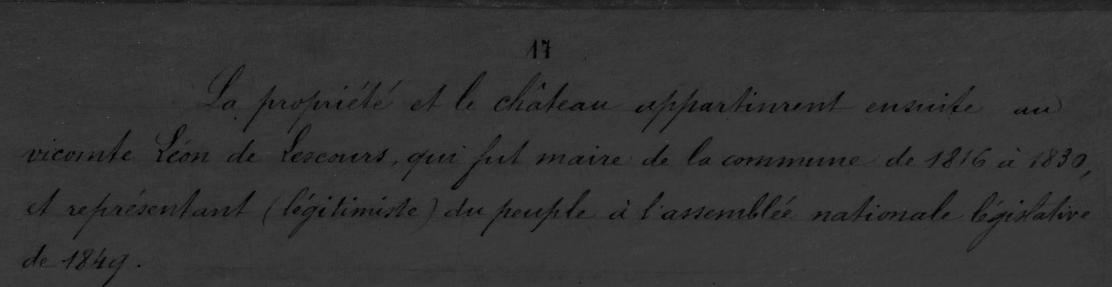 17
La propriété et le château appartinrent ensuite au
vicomte Léon de Lescours, qui fut maire de la commune de 1816 à 1830,
et représentant (légitimiste) du peuple à l'assemblée nationale législative
de 1849.